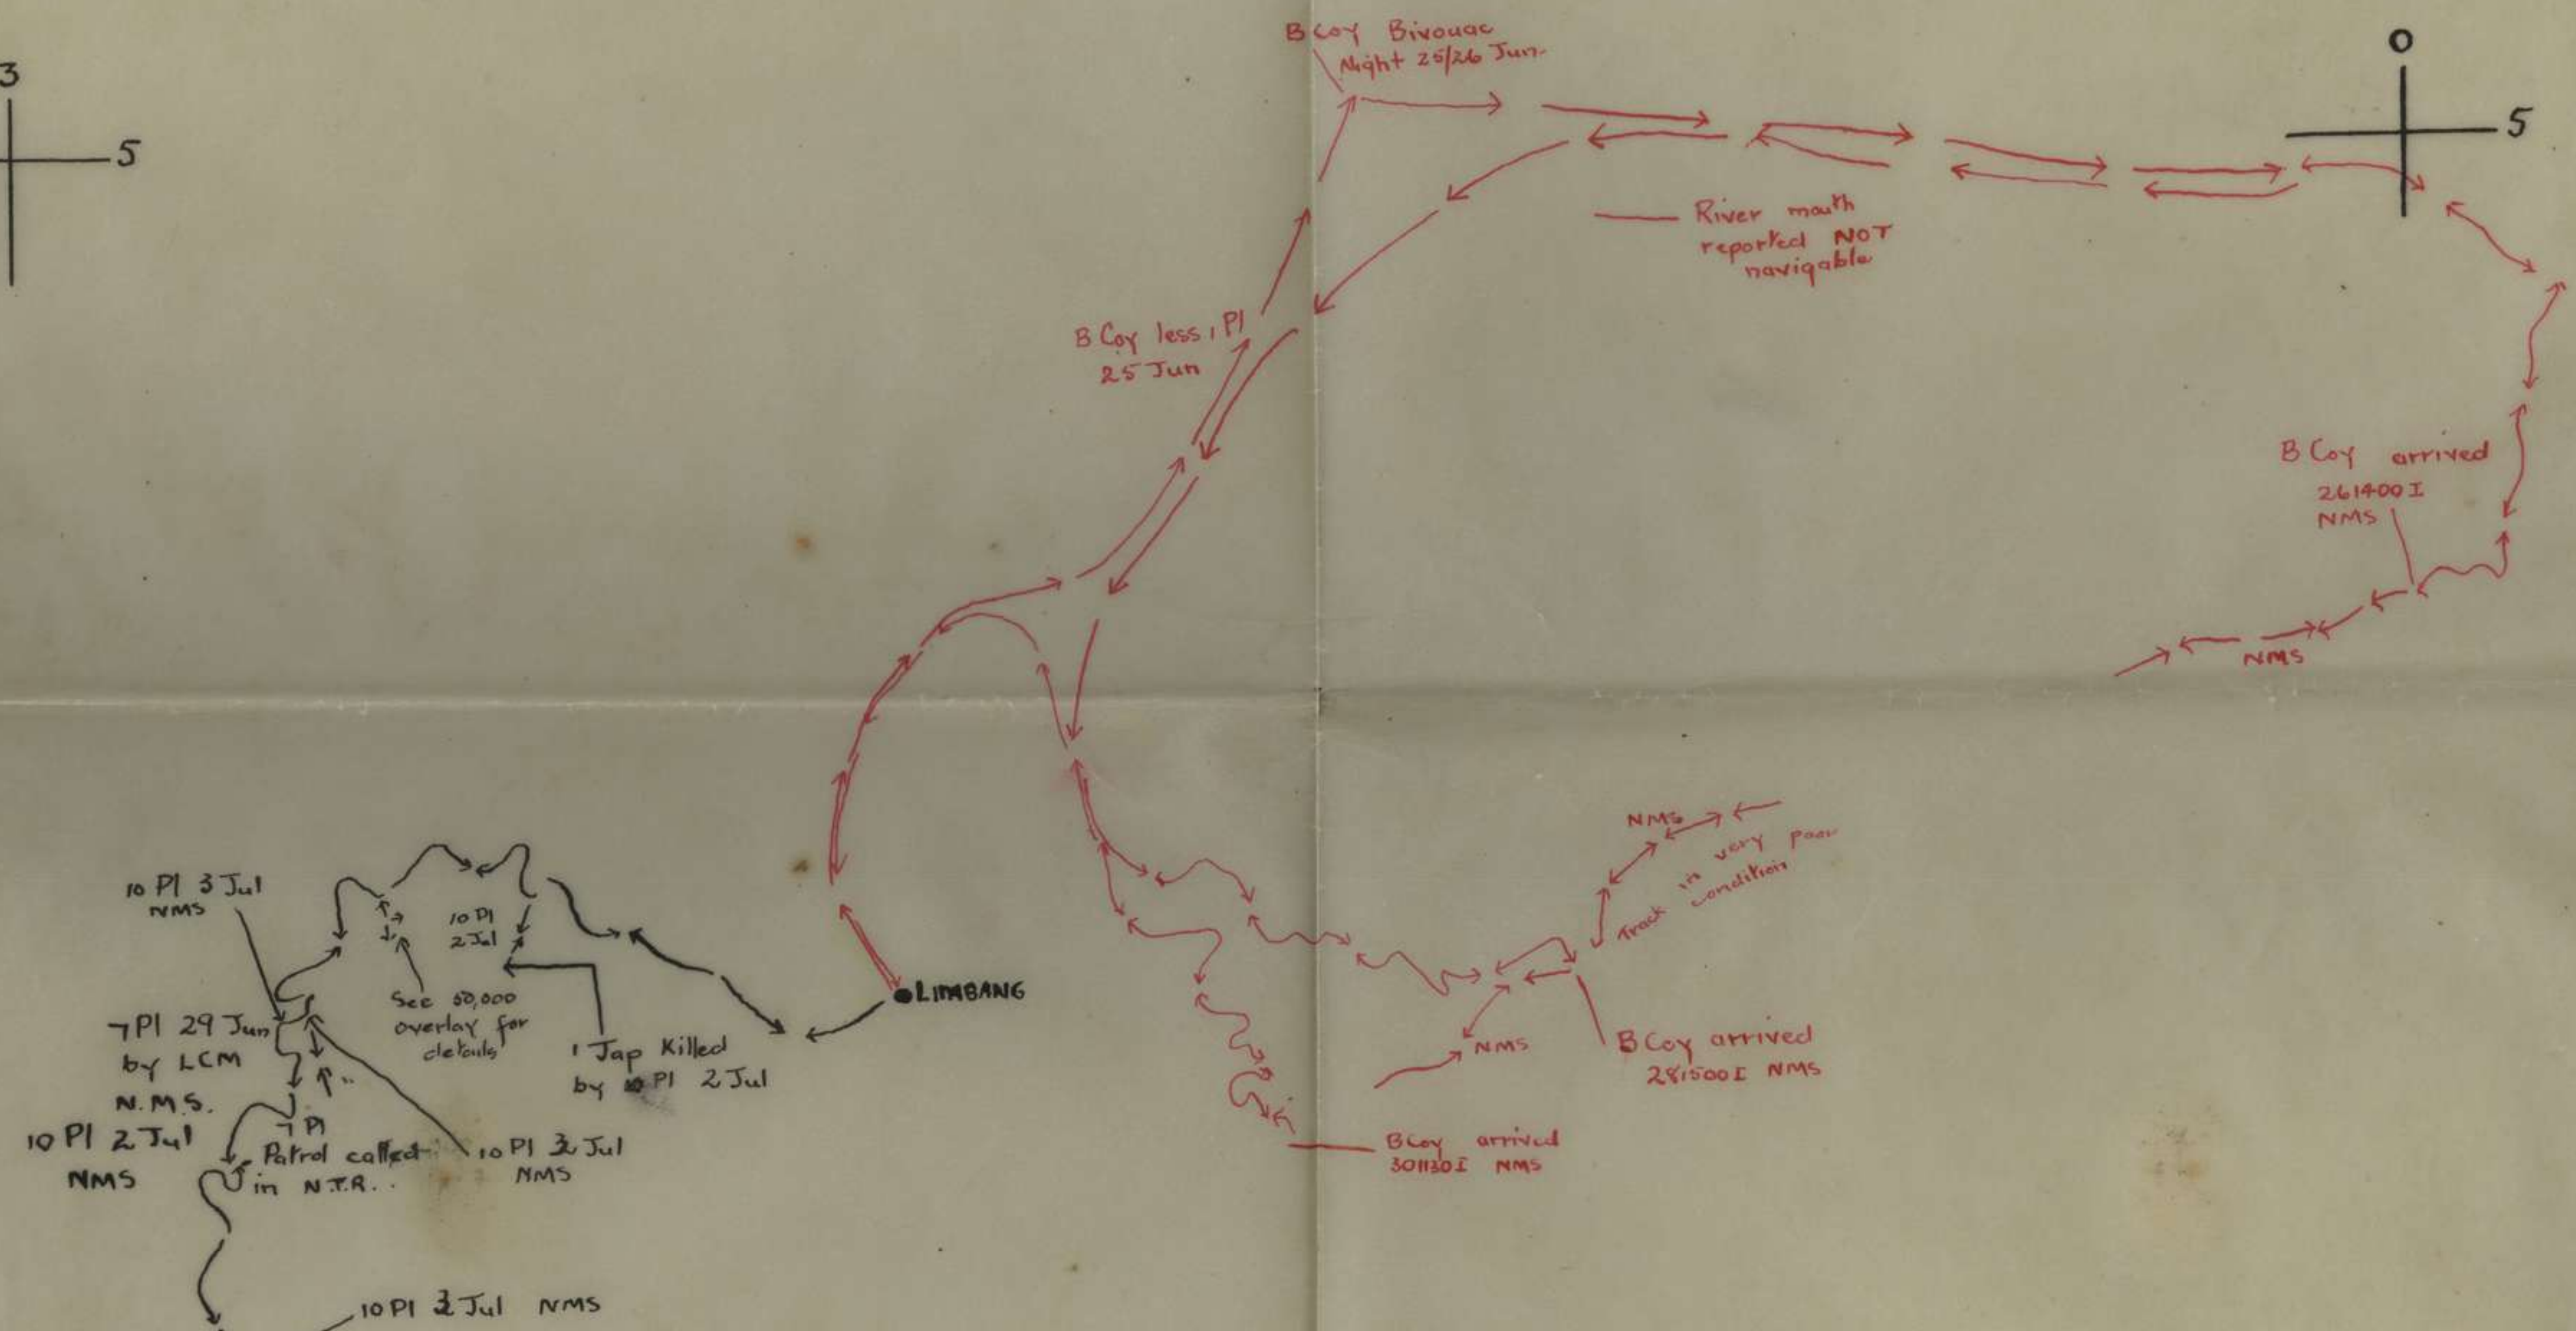 3
5
B Coy Bivouac
Night 25/26 Jun.
0
5
River mouth
reported NOT
navigable
B Coy less 1 Pl
25 Jun
B Coy arrived
261400 I
NMS
NMS
NMS
Track in very poor
condition
10 Pl 3 Jul
NMS
10 Pl
2 Jul
See 50,000
overlay for
details
LIMBANG
7 Pl 29 Jun
by LCM
N.M.S.
1 Jap Killed
by Pl 2 Jul
NMS
B Coy arrived
281500 I NMS
10 Pl 2 Jul
NMS
7 Pl
Patrol called
in N.T.R..
10 Pl Jul
NMS
B Coy arrived
301130 I NMS
10 Pl Jul NMS